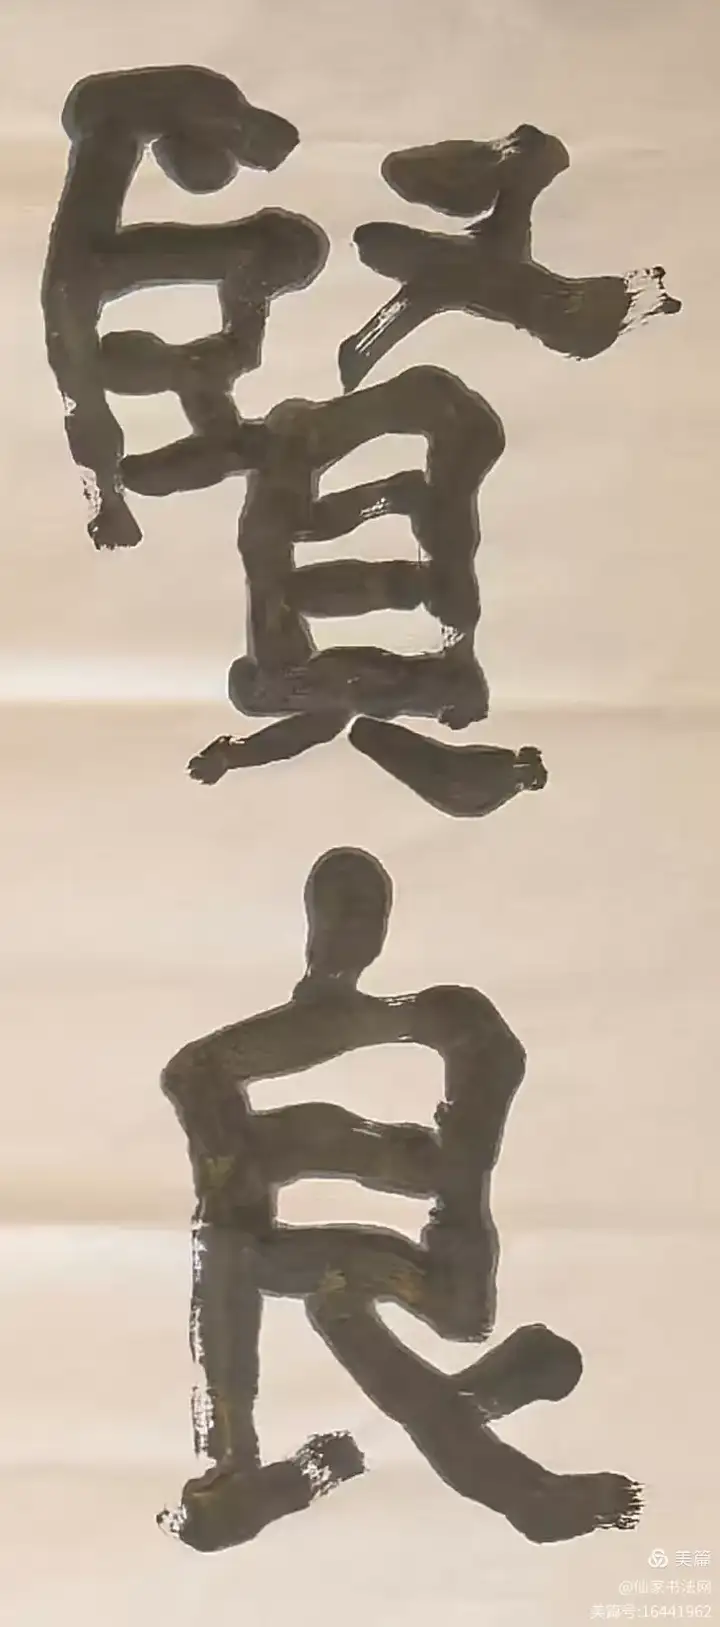 賢良
美篇
@仙家书法网
美篇号:16441962